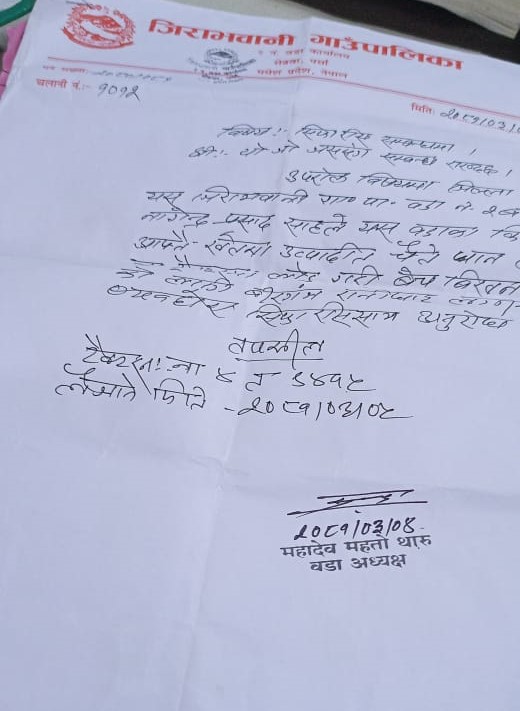 जिराभवानी गाउँपालिका
२ नं. वडा कार्यालय
सेढवा, पर्सा
मधेश प्रदेश, नेपाल
पत्र संख्या:- २०८०/०८१
चलानी नं.:- १०१२
मिति: २०८१/०३/०
विषय:- सिफारिस सम्बन्धमा।
श्री:- यो जो जससंग सम्बन्ध राख्दछ।
उपरोक्त विषयमा जिल्ला
यस जिराभवानी गा॰ पा॰ वडा नं.
नागेन्द्र प्रसाद साहले यस वडाका
आफ्नै खेतमा उत्पादित चैते धान
लोड गरी बेच बिखन
को लागि बीरगंज
व्यहोरा सिफारिससाथ अनुरोध
तपसील
टैक्टर नं:- ना ४ त ३४१५
लैजाने मिति - २०८१/०३/०५
२०८१/०३/०४
महादेव महतो थारु
वडा अध्यक्ष